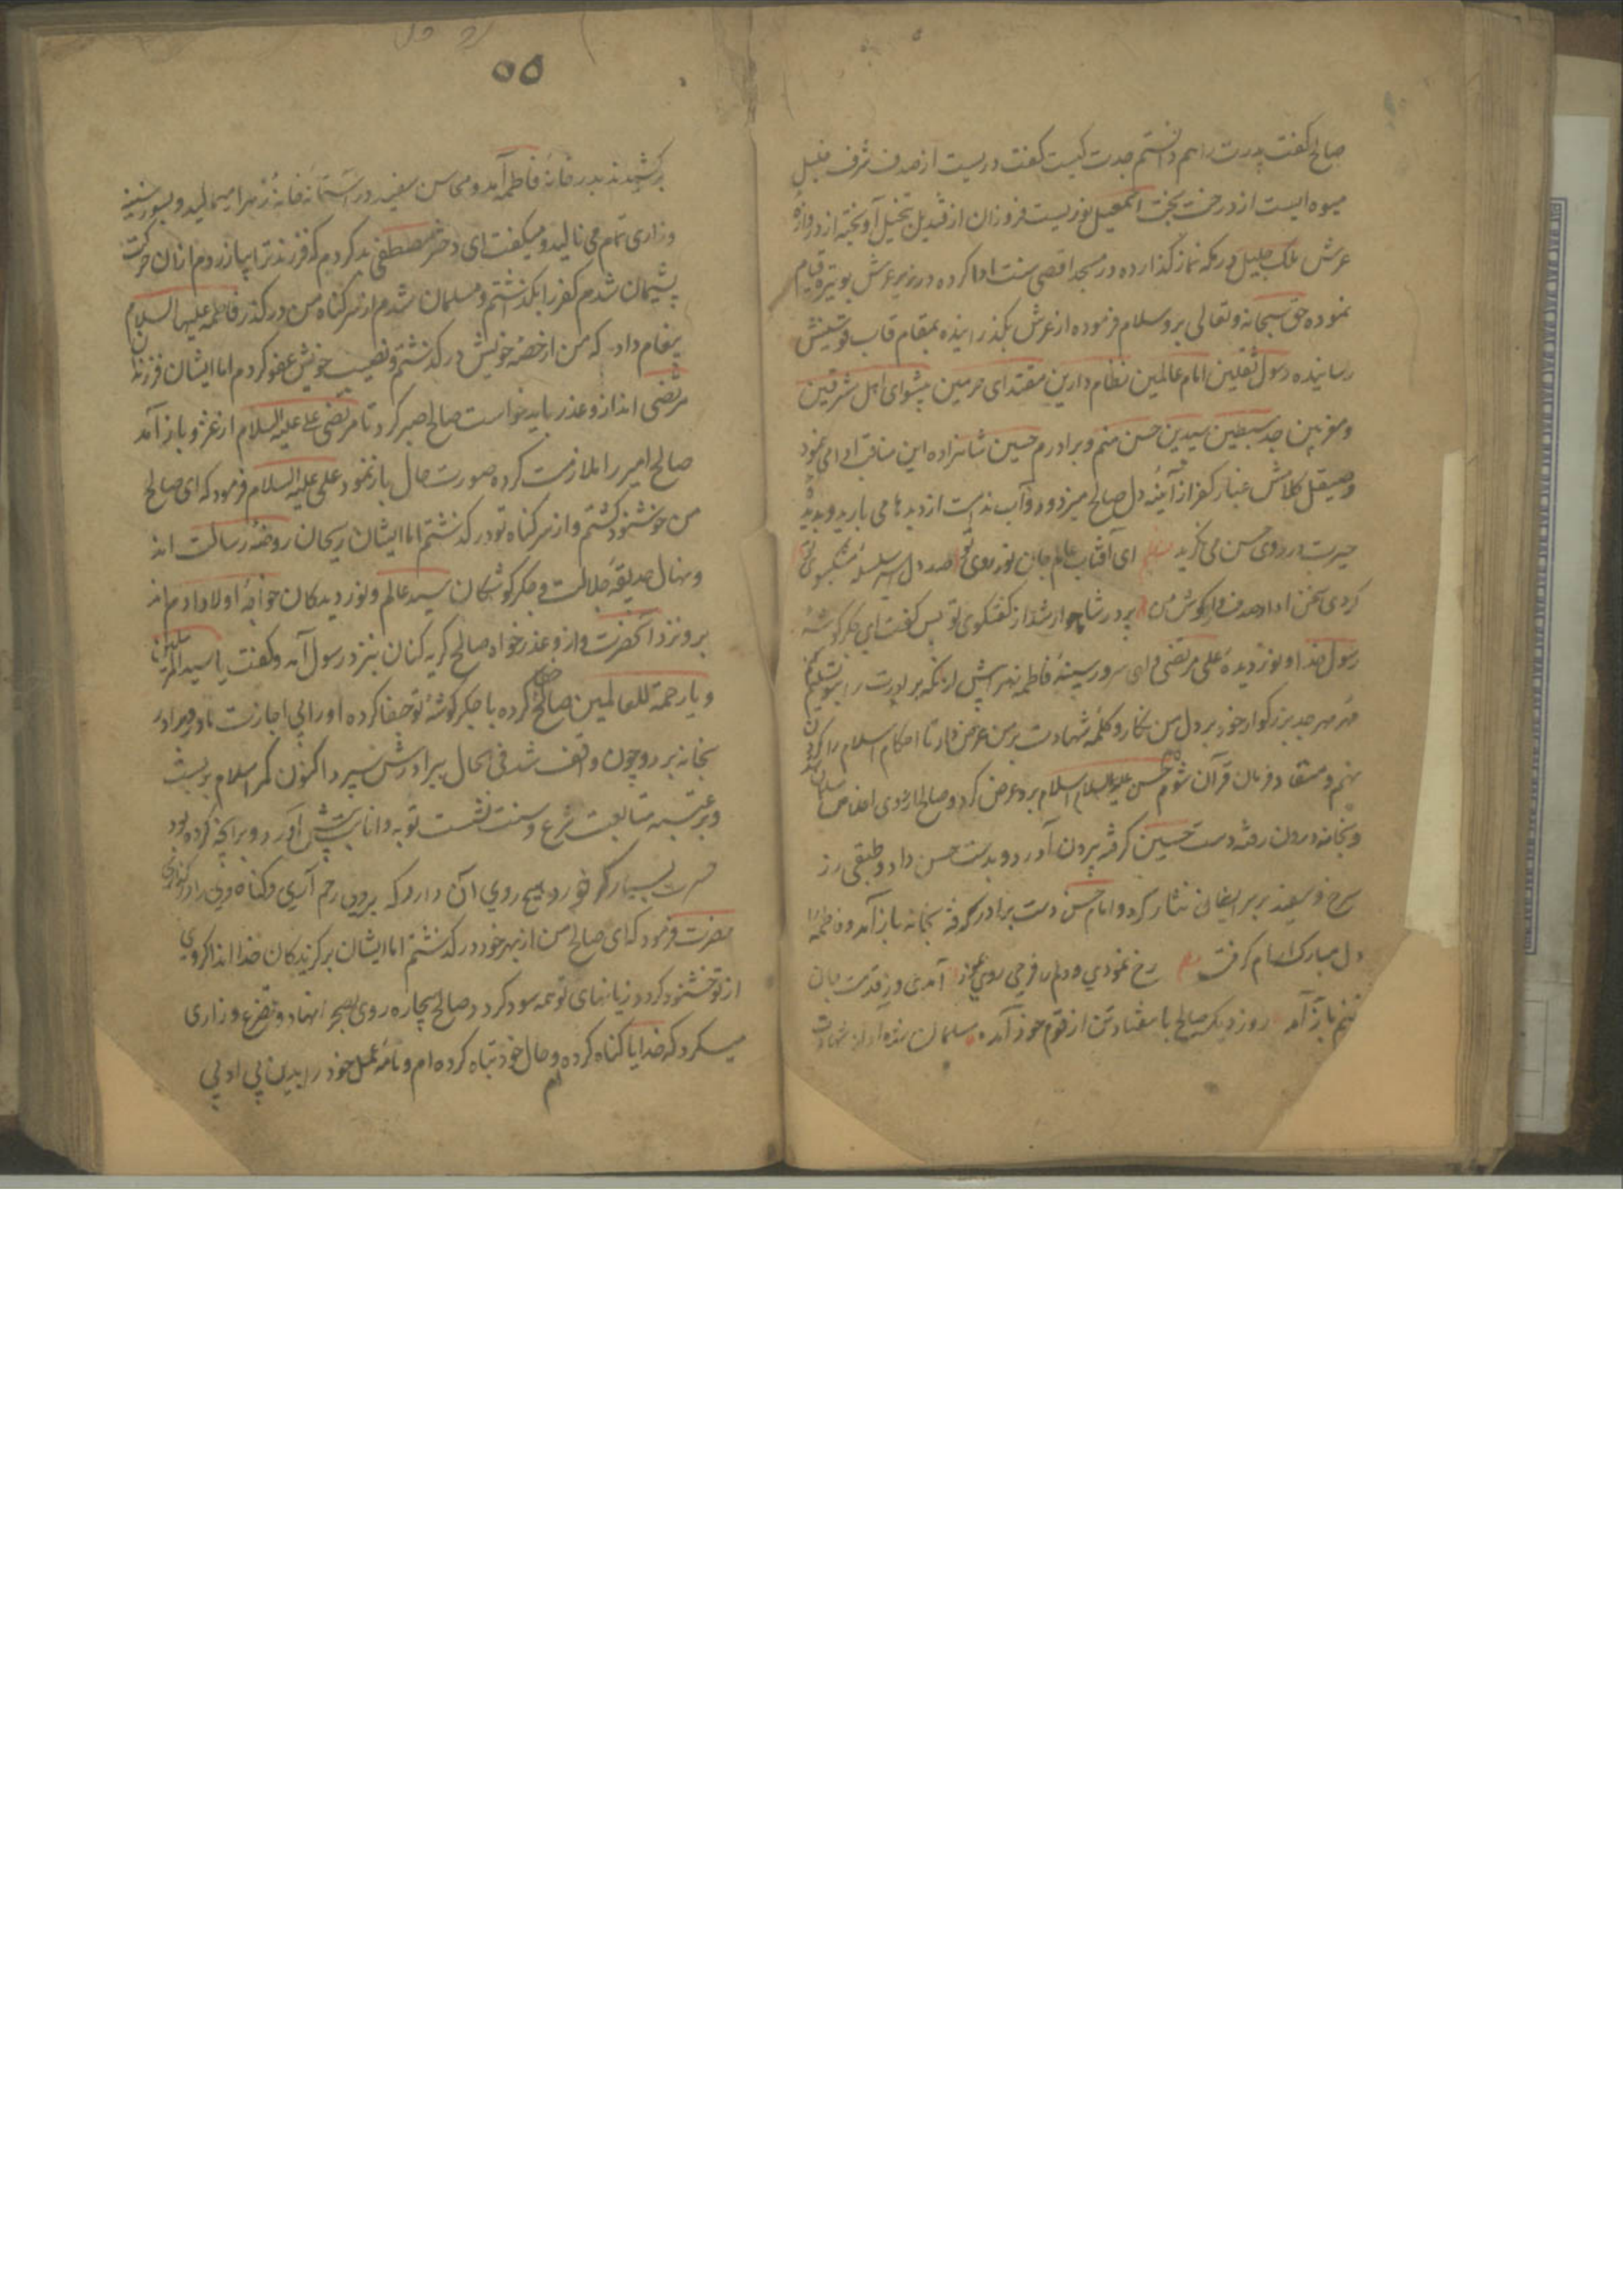 صالح گفت پدرت را هم دانستم جدت کیست گفت دریست از صدف شرف خلیل
میوه ایست از درخت بخت اسمعیل نوریست فروزان از قندیل تبجیل آویخته از دروازه
عرش ملک جلیل در مکه نماز گذارده در مسجد اقصی سنت ادا کرده در زیر عرش بوتیره قیام
نموده حق سبحانه و تعالی برو سلام فرموده از عرش بگذرانیده بمقام قاب قوسینش
رسانیده رسول ثقلین امام عالمین نظام دارین مقتدای حرمین پیشوای اهل مشرقین
و مغربین جد سبطین سیدین حسن منم و برادرم حسین شاهزاده این مناقب ادا می نمود
و صیقل کلامش غبار کفر از آئینه دل صالح میزدود و آب ندامت از دیدها می بارید و بدیدهٔ
حیرت در روی حسن می نگرید ای آفتاب عالم جان نور روی تو صد دل اسیر سلسلهٔ مشکبوی تو
کردی سخن ادا و صدف وار گوش من پر در شاهوار شد از گفتگوی تو پس گفت ای جگر گوشهٔ
رسول خدا و نور دیدهٔ علی مرتضی و ای سرور سینهٔ فاطمه زهرا پیش از آنکه برادرت را بتو تسلیم کنم
مهر مهر جد بزرگوار خود بر دل من نگار و کلمهٔ شهادت بر من عرض دار تا احکام اسلام را گردن
نهم و منقاد فرمان قرآن شوم حسن علیه السلام اسلام برو عرض کرد و صالح از روی اخلاص مسلمان شد
و بخانه درون رفته دست حسین گرفته بیرون آورد و بدست حسن داد و طبقی زر
سرخ و سفید بر سر ایشان نثار کرد و امام حسن دست برادر گرفته بخانه باز آمد و فاطمه را
دل مبارک آرام گرفت رخ نمودی و دلم را فرحی روی نمود آمدی وز قدمت جان
بتنم باز آمد روز دیگر صالح با هفتاد تن از قوم خود آمده مسلمان شده آواز شهادت
۵۵
برکشیدند بدر خانهٔ فاطمه آمد و محاسن سفید در آستانهٔ خانهٔ زهرا میمالید و بسوز سینه
و زاری تمام می نالید و میگفت ای دختر مصطفی بد کردم که فرزند ترا بیازردم از آن حرکت
پشیمان شدم کفر را بگذاشتم و مسلمان شدم از سر گناه من در گذر فاطمه علیها السلام
پیغام داد که من از حصهٔ خویش در گذشتم و نصیب خویش عفو کردم اما ایشان فرزندان
مرتضی اند ازو عذر باید خواست صالح صبر کرد تا مرتضی علی علیه السلام از غزو باز آمد
صالح امیر را ملازمت کرده صورت حال باز نمود علی علیه السلام فرمود که ای صالح
من خوشنود گشتم و از سر گناه تو در گذشتم اما ایشان ریحان روضهٔ رسالت اند
و نهال حدیقهٔ جلالت و جگر گوشگان سید عالم و نور دیدگان خواجهٔ اولاد آدم اند
برو نزد آنحضرت و ازو عذر خواه صالح گریه کنان بنزد رسول آمد و گفت یا سید المرسلین
و یا رحمة للعالمین صالح خطا کرده با جگر گوشهٔ تو جفا کرده او را بی اجازت مادر و برادر
بخانه برد و چون واقف شد فی الحال ببرادرش سپرد اکنون کمر اسلام بر بست
و بر عتبه متابعت شرع و سنت نشست توبه و انابت پیش آورد و برانچه کرده بود
حسرت بسیار خورد هیچ روی آن دارد که بروی رحم آری و گناه وی را در گذاری
حضرت فرمود که ای صالح من از بهر خود در گذشتم اما ایشان برگزیدگان خدا اند اگر وی
از تو خشنود گردد زیانهای تو همه سود گردد صالح بیچاره روی بصحرا نهاد و تضرع و زاری
میکرد که خدایا گناه کرده ام و حال خود تباه کرده ام و نامهٔ عمل خود را بدین بی ادبی